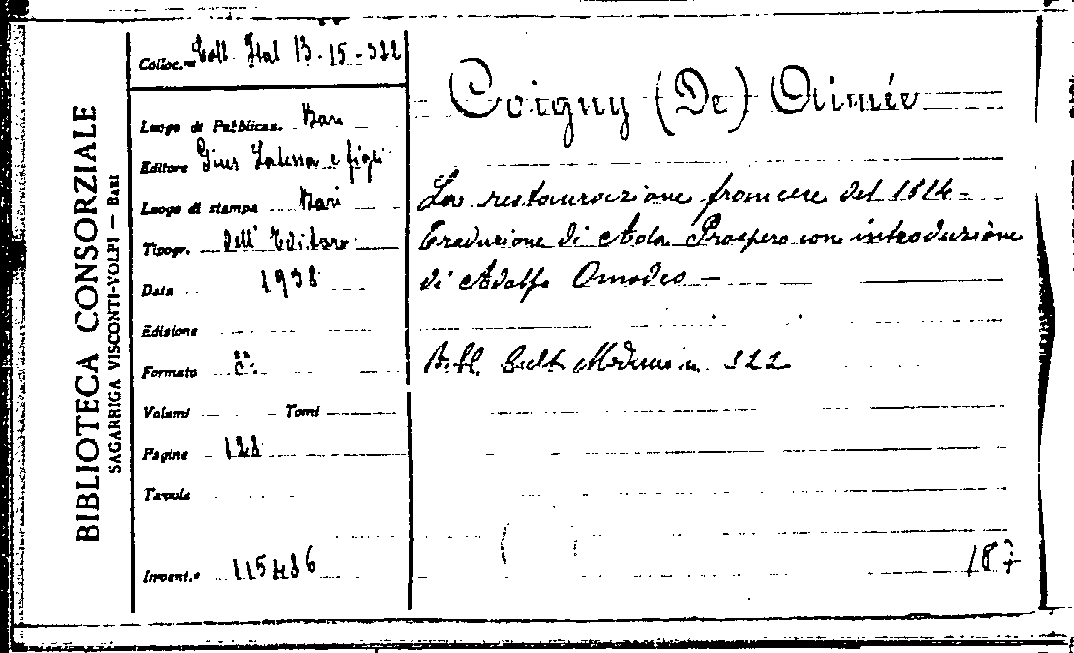 BIBLIOTECA CONSORZIALE
SAGARRIGA VISCONTI-VOLPI — BARI
Colloc.ne Coll. Ital B-15-322
Luogo di Pubblicaz. Bari
Editore Gius Laterza e figli
Luogo di stampa Bari
Tipogr. dell'Editore
Data 1938
Edizione
Formato 8:
Volumi Tomi
Pagine 128
Tavole
Invent.o
Coigny (De) Aimée
La restaurazione francese del 1814 -
Traduzione di Ada Prospero con introduzione
di Adolfo Omodeo —
Bibl. Cult. Moderna n. 322
187